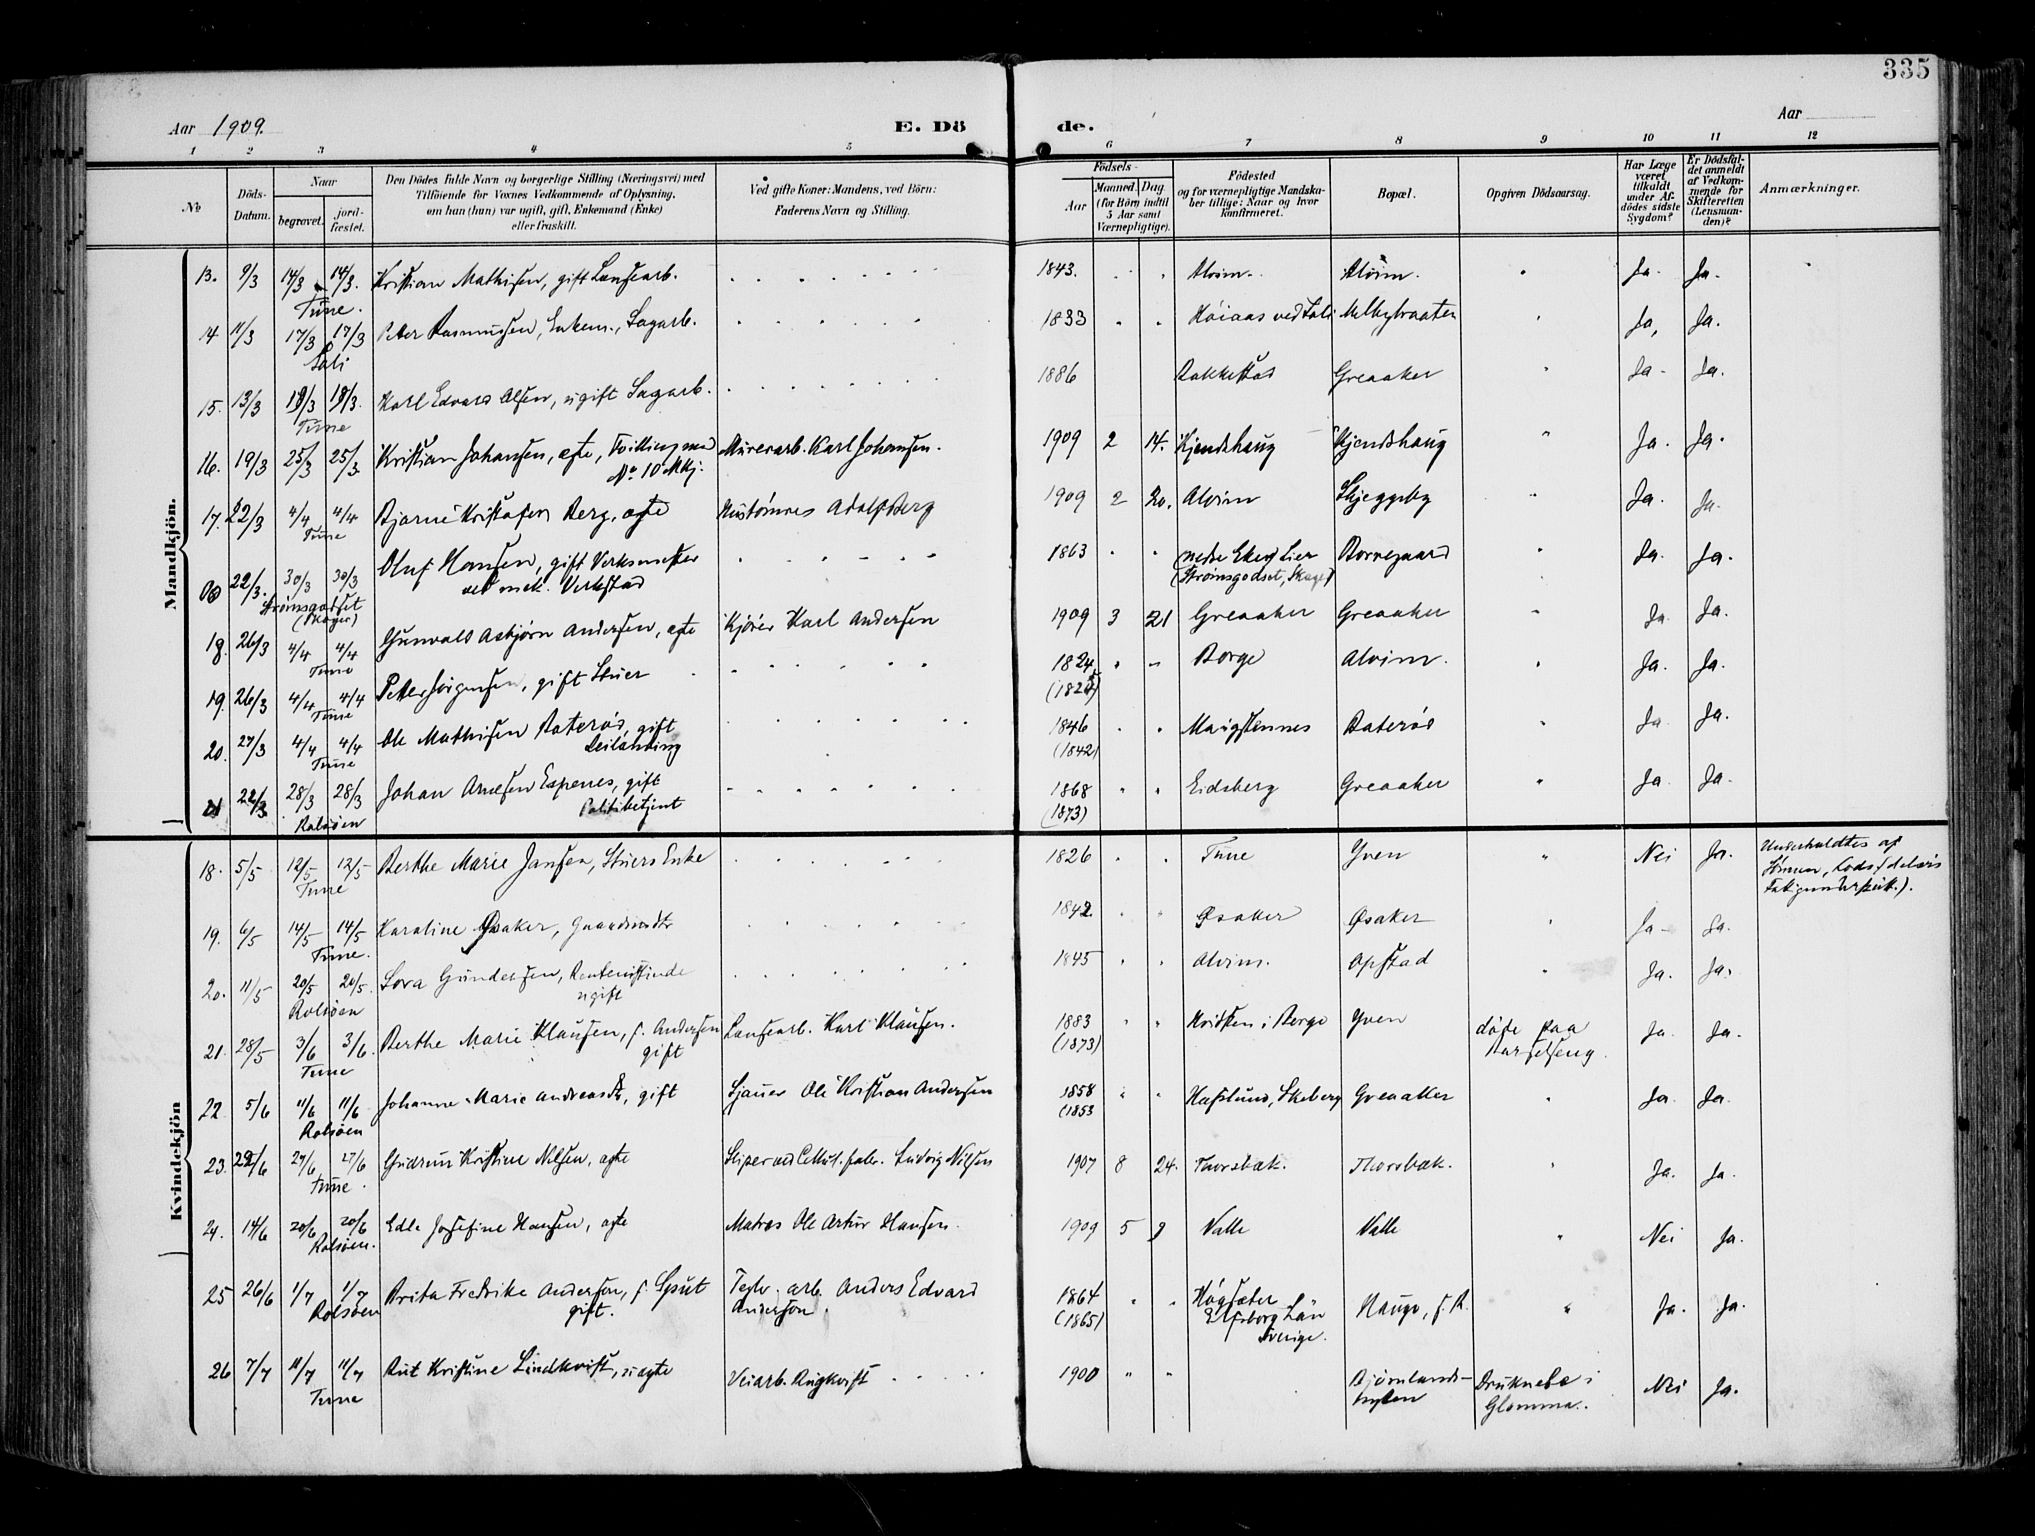 335
Aar 1909. E. Dö de. Aar
1 2 3 4 5 6 7 8 9 10 11 12
No
Döds-Datum.
Naar
begravet.
jord-fæstet.
Den Dödes fulde Navn og borgerlige Stilling (Næringsvei) med
Tilföiende for Voxnes Vedkommende af Oplysning,
om han (hun) var ugift, gift, Enkemand (Enke)
eller fraskilt.
Ved gifte Koner: Mandens, ved Börn:
Faderens Navn og Stilling.
Födsels-
Aar
Maaned. Dag.
(for Börn indtil
5 Aar samt
Værnepligtige).
Födested
og for værnepligtige Mandska-
ber tillige: Naar og hvor
konfirmeret.
Bopæl.
Opgiven Dödsaarsag.
Har Læge
været
tilkaldt
under Af-
dödes sidste
Sygdom?
Er Dödsfal-
det anmeldt
af Vedkom-
mende for
Skifteretten
(Lensman-
den)?
Anmærkninger.
Mandkjön.
13. 9/3 14/3 14/3. Kristian Mathisen, gift Landarb. 1843. Alvim. Alvim. Ja. Ja.
Tune.
14 11/3 17/3 17/3 Peter Rasmussen, Enkem., Sagarb. 1833 Høiaas ved Soli Melbybraaten Ja, Ja.
Soli
15. 13/3 19/3 19/3. Karl Edvard Olsen, ugift Sagarb. 1886 Rakkestad Greaaker Ja - Ja.
Tune
16. 19/3 25/3 25/3 Kristian Johansen, ægte, Tvilling med Murerarb. Karl Johansen. 1909 2 14. Kjendshaug Kjendshaug Ja. Ja.
No 10 Mkj.
17. 22/3 4/4 4/4 Bjarne Kristofer Berg, ægte Hustømres Adolf Berg 1909 2 20. Alvim Skjeggeby Ja. Ja.
Tune
22/3. 30/3 30/3 Oluf Hansen, gift Verksmester 1863 nedre Eker, Lier Borregaard Ja. Ja.
ved mek. Verkstad (Strømsgodset, Skoger)
Strømsgodset
(Skoger)
18. 26/3 4/4 4/4 Gunvald Asbjørn Andersen, ægte Kjører Karl Andersen 1909 3 21 Greaaker Greaaker Ja Ja.
Tune
19. 26/3 4/4 4/4 Petter Jørgensen, gift Stuer 1824 Borge Alvim. Ja. Ja.
Tune
20. 27/3 4/4 4/4 Ole Mathisen Raterød, gift 1846 Raterød Ja Ja.
(1842)
Tune Leilænding
21 22/3 28/3 28/3 Johan Arnesen Espenes, gift 1868 Eidsberg Greaaker Ja Ja.
(1873)
Rolsøen Politibetjent
Kvindekjön
18. 5/5 12/5 12/5 Berthe Marie Jansen, Stuers Enke 1826 Tune Yven Nei Ja. Underholdtes af
Tune
19. 6/5 14/5 14/5 Karoline Øsaker, Gaardmandsdtr 1842 Øsaker Øsaker Ja - Ja.
Tune.
20. 11/5 20/5 20/5. Lova Gundersen, Rentenistinde 1845 Alvim. Opstad Ja. Ja.
Rolsøen ugift
21. 28/5 3/6 3/6. Berthe Marie Klausen, f. Andersen Landarb. Karl Klausen. 1883 i Borge Yven døde paa Ja. Ja.
(1873) Barselseng.
Tune gift
22. 5/6 11/6 11/6 Johanne Marie Andreasdtr, gift Sjauer Ole Kristian Andersen 1858 Hafslund, Skeberg Greaaker Ja. Ja.
(1853
Rolsøen
23. 22/6 27/6 27/6 Gudrun Kristine Nilsen, ægte Sliper ved Cellul. fabr. Ludvig Nilsen 1907 8 24. Thorsbæk. Thorsbæk. Ja. Ja.
Tune.
24. 14/6 20/6 20/6 Edle Josefine Hansen, ægte Matros Ole Artur Hansen. 1909 5 9 Valle Valle Nei Ja.
Rolsøen.
25 26/6 1/7 1/7 Brita Fredrike Anderson, f. Sput Teglv. arb. Anders Edvard 1864 Høgsæter Hauge, f. R. Ja. Ja.
Rolsøen gift. Anderson. (1865) Elfsborg Län
Sverige.
26 7/7 11/7 11/7 Rut Kristine Lindkvist, uægte Veiarb. Ringkvist 1900 Bjørnlands- Druknede i Nei Ja.
Tune hyten Glomma.